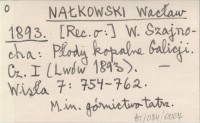 NAŁKOWSKI Wacław
1893. [Rec. o:] W. Szajno-
cha: Płody kopalne Galicji.
Cz. I (Lwów 1893). –
Wisła 7: 754–762.
M.in. górnictwo tatrz.